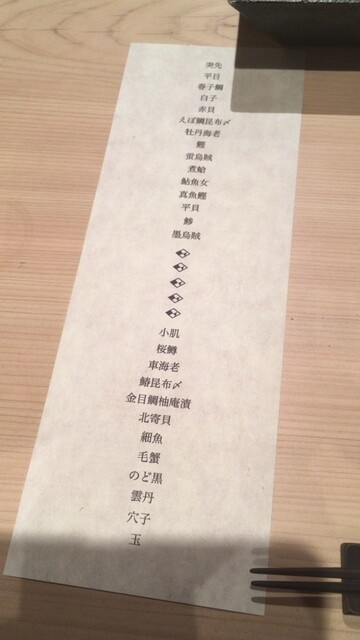 突先
平目
春子鯛
白子
赤貝
えぼ鯛昆布〆
牡丹海老
鰹
蛍烏賊
煮蛤
鮎魚女
真魚鰹
平貝
鯵
墨烏賊
小肌
桜鱒
車海老
鰆昆布〆
金目鯛柚庵漬
北寄貝
細魚
毛蟹
のど黒
雲丹
穴子
玉